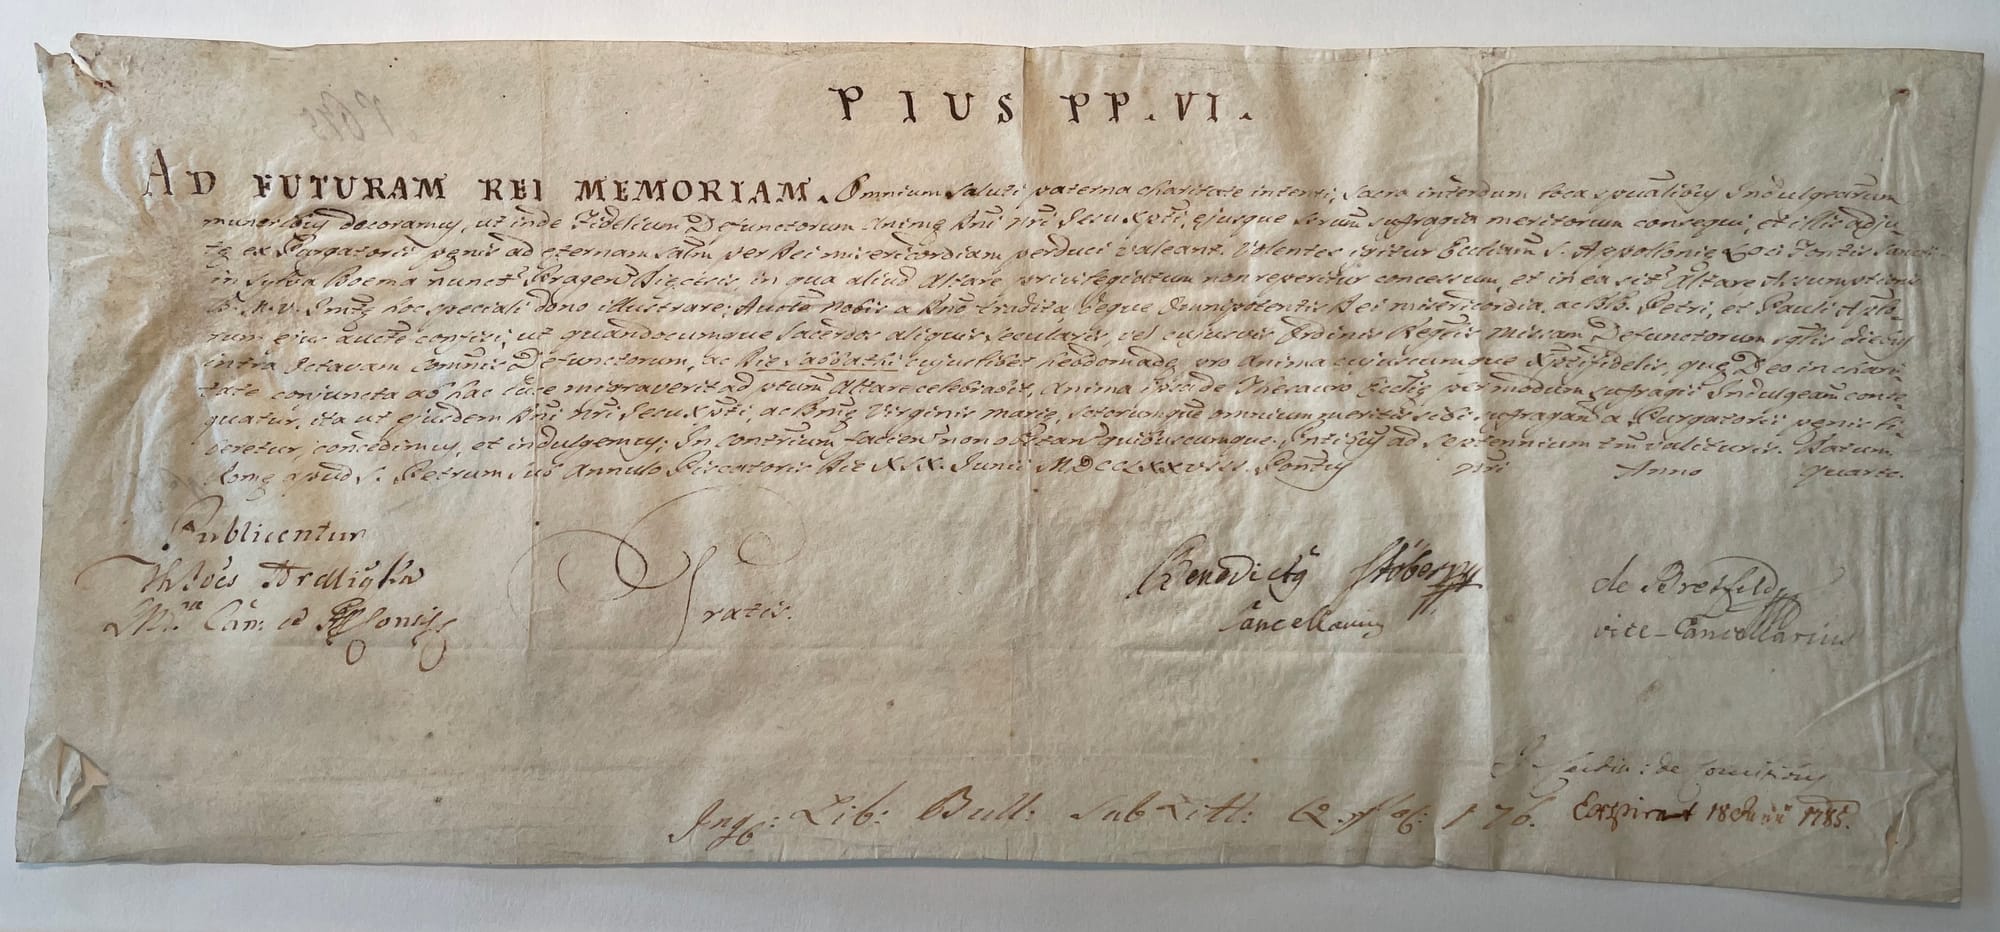 PIUS PP. VI.
AD FUTURAM REI MEMORIAM. Omnium saluti paterna charitate intenti, sacra interdum loca spualibus Indulgtiarum
muneribus decoramus, ut inde Fidelium Defunctorum Animę Dni Nri Jesu Xpti, ejusque Sctorum suffragia meritorum consequi, et illis adju-
tę ex Purgatorii pęnis ad ęternam salm per Dei misericordiam perduci valeant. Volentes igitur Ecclesiam S. Appollonię Loci Fontis Sancti
in Sylva Boema nunct Pragen Dięcesis, in qua aliud Altare privilegiatum non reperitur concessum, et in ea sit Altare Assumptionis
B. M. V. Imtę hoc speciali dono illustrare; Auctte Nobis a Dno tradita, deque Omnipotentis Dei misericordia, ac BB. Petri, et Pauli Apło-
rum ejus aucte confisi, ut quandocumque Sacerdos aliquis Secularis, vel cujusvis Ordinis Regris Missam Defunctorum sglis diebus
intra Octavam Commis Defunctorum, ac Die Sabbathi cujuslibet hebdomadę, pro Anima cujuscumque Xptifidelis, quę Deo in chari-
tate conjuncta ab hac luce migraverit ad pttum Altare celebrabit, Anima ipsa de Thesauro Ecclię per modum suffragii Indulgeam conse-
quatur, ita ut ejusdem Dni Nri Jesu Xpti, ac Bmę Virginis Marię, Sctorumque omnium meritis sibi suffragan a Purgatorii pęnis li-
beretur, concedimus, et indulgemus; In contrium facien non obstan quibuscumque. Pntibus ad Septennium tm valituris. Datum
Romę apud S. Petrum sub Annulo Piscatoris Die XIX. Junii MDCCLXXVIII. Pontus Nri Anno Quarto.
Publicentur
Gratis.
Benedictus Stöberus
Cancellarius
de Bretfeld
vice-Cancellarius
Ingb: Lib: Bull: sub Litt: Q. fol: 176.
Exspirat 18 Junii 1785.